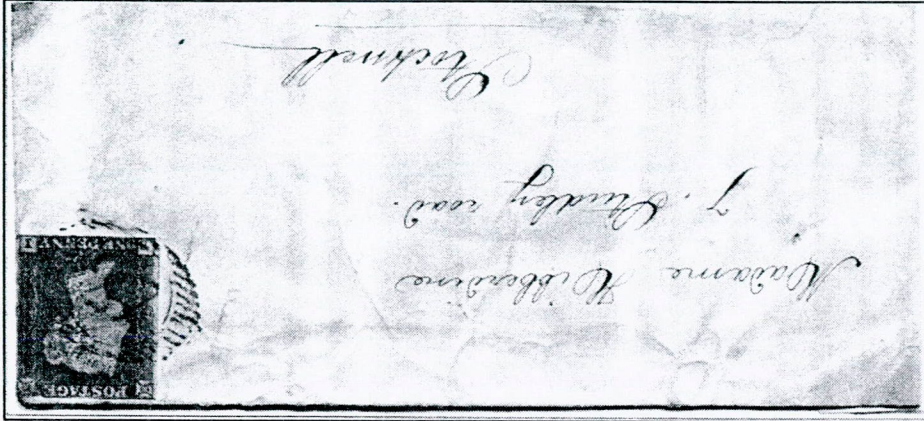 POSTAGE
ONE PENNY
Madame Hibberdine
7. Studley road.
Stockwell